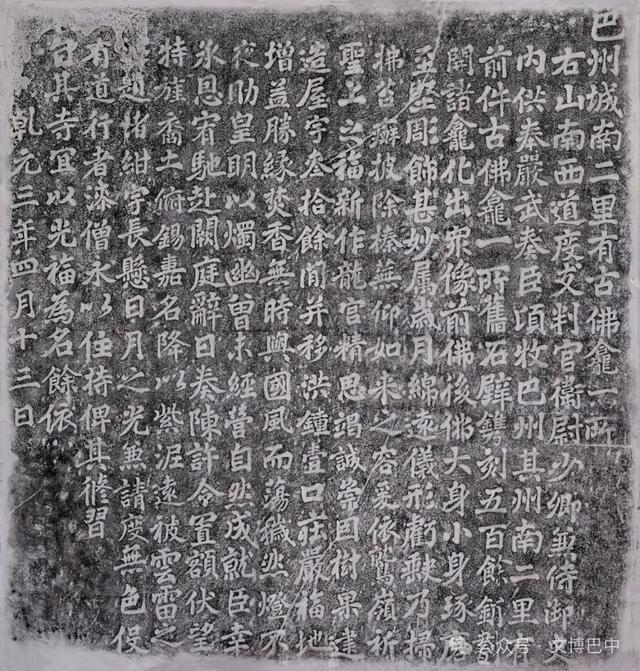 巴州城南二里有古佛龕一所
右山南西道度支判官衞尉少卿兼侍御
內供奉嚴武奏臣頃牧巴州其州南二里
前件古佛龕一所舊石壁鐫刻五百餘
開諸龕化出衆像前佛後佛大身小身琢
至堅彫飾甚妙屬歲月綿遠儀形虧缺乃掃
拂苔癬披除榛蕪仰如來之容爰依鷲嶺祈
聖上之福新作龍宮精思竭誠崇因樹果建
造屋宇叁拾餘閒并移洪鍾壹口莊嚴福地
增益勝緣焚香無時與國風而蕩穢燃燈不
夜助皇明以燭幽曾未經營自然成就臣幸
承恩宥馳赴闕庭辭日奏陳許令置額伏望
特旌喬土俯錫嘉名降以紫泥遠被雲雷之
題諸紺宇長懸日月之光兼請度無色役
有道行者漆僧永以住持俾其修習
其寺宜以光福為名餘依
乾元三年四月十三日
公众号·文博巴中